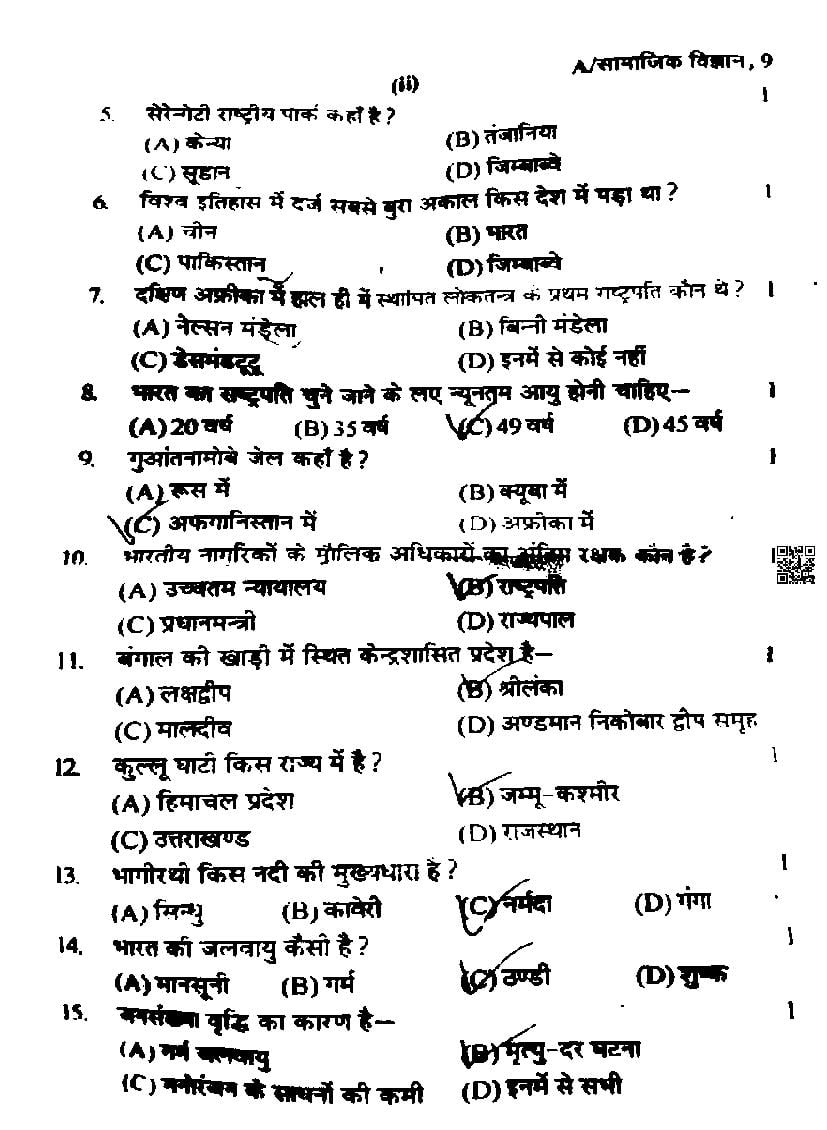 A/सामाजिक विज्ञान, 9
(ii)
5. सेरेन्गेटी राष्ट्रीय पार्क कहाँ है? 1
(A) केन्या (B) तंजानिया
(C) सूडान (D) जिम्बाब्वे
6. विश्व इतिहास में दर्ज सबसे बुरा अकाल किस देश में पड़ा था? 1
(A) चीन (B) भारत
(C) पाकिस्तान (D) जिम्बाब्वे
7. दक्षिण अफ्रीका में हाल ही में स्थापित लोकतन्त्र के प्रथम राष्ट्रपति कौन थे? 1
(A) नेल्सन मंडेला (B) विन्नी मंडेला
(C) डेसमंडटूटू (D) इनमें से कोई नहीं
8. भारत का राष्ट्रपति चुने जाने के लए न्यूनतम आयु होनी चाहिए— 1
(A) 20 वर्ष (B) 35 वर्ष (C) 49 वर्ष (D) 45 वर्ष
9. गुआंतनामोबे जेल कहाँ है? 1
(A) रूस में (B) क्यूबा में
(C) अफगानिस्तान में (D) अफ्रीका में
10. भारतीय नागरिकों के मौलिक अधिकारों का अंतिम रक्षक कौन है? 1
(A) उच्चतम न्यायालय (B) राष्ट्रपति
(C) प्रधानमन्त्री (D) राज्यपाल
11. बंगाल की खाड़ी में स्थित केन्द्रशासित प्रदेश है— 1
(A) लक्षद्वीप (B) श्रीलंका
(C) मालदीव (D) अण्डमान निकोबार द्वीप समूह
12. कुल्लू घाटी किस राज्य में है? 1
(A) हिमाचल प्रदेश (B) जम्मू-कश्मीर
(C) उत्तराखण्ड (D) राजस्थान
13. भागीरथी किस नदी की मुख्यधारा है? 1
(A) सिन्धु (B) कावेरी (C) नर्मदा (D) गंगा
14. भारत की जलवायु कैसी है? 1
(A) मानसूनी (B) गर्म (C) ठण्डी (D) शुष्क
15. जनसंख्या वृद्धि का कारण है— 1
(A) गर्म जलवायु (B) मृत्यु-दर घटना
(C) मनोरंजन के साधनों की कमी (D) इनमें से सभी